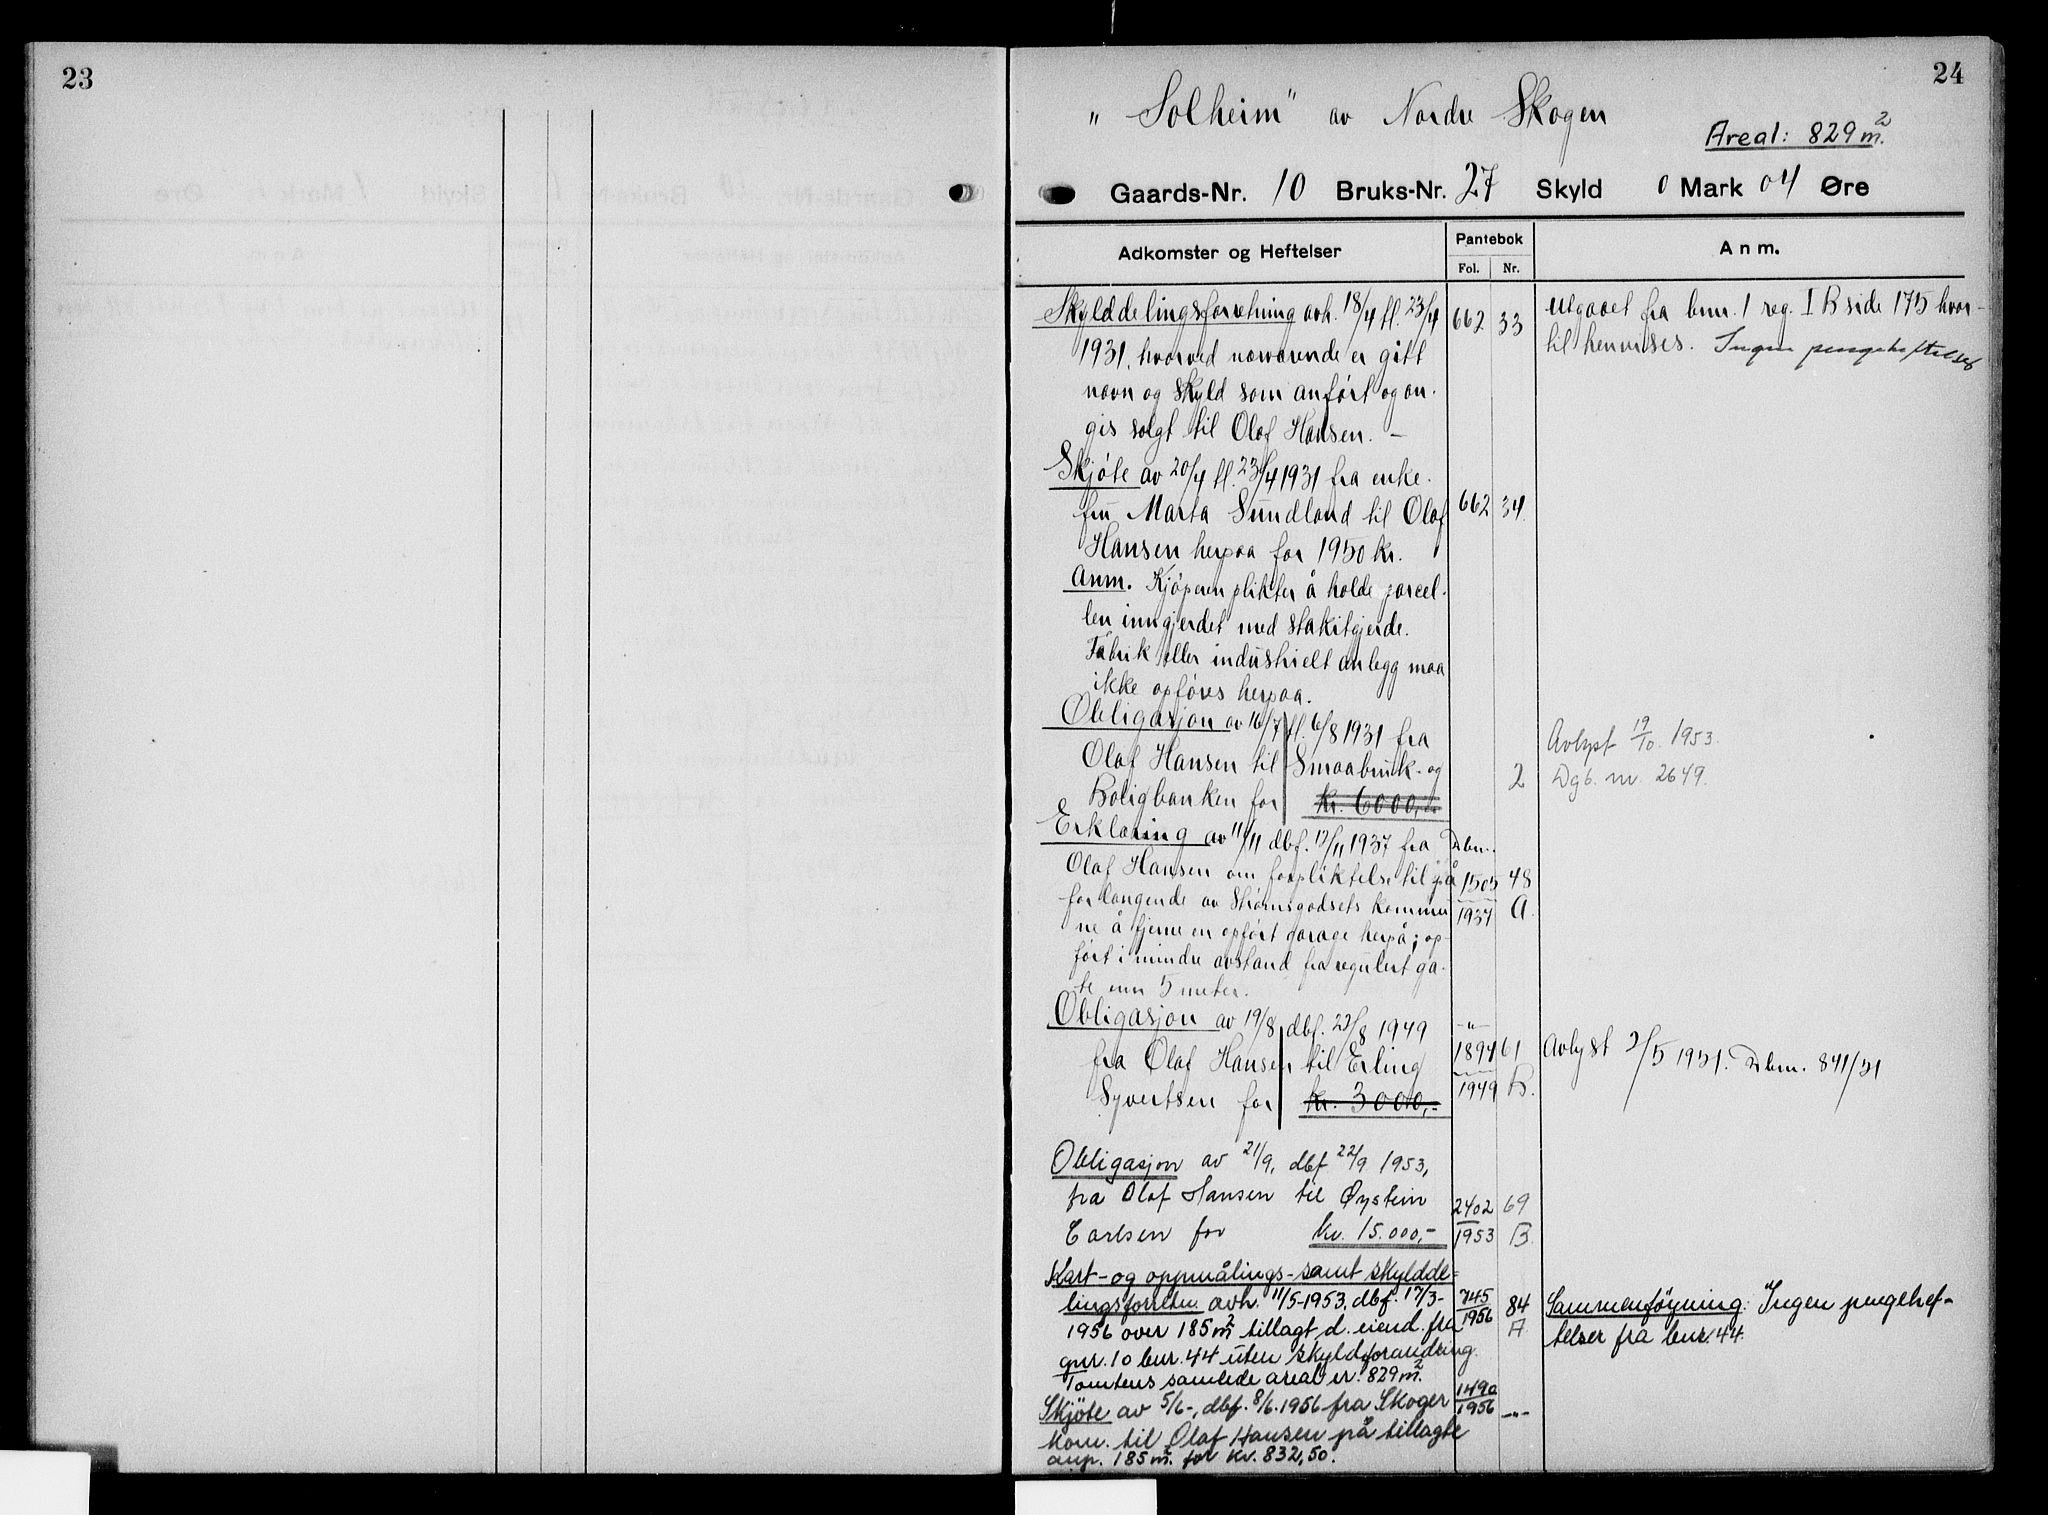 23
24
„ Solheim" av Nordre Skogen
Areal: 829 m².
Gaards-Nr. 10 Bruks-Nr. 27 Skyld 0 Mark 04 Øre
Adkomster og Heftelser
Pantebok
Fol. Nr.
Anm.
Skylddelingsforretning avh. 18/4 tl. 23/4 662 33
1931, hvorved nærværende er gitt
navn og skyld som anført og an-
gis solgt til Olaf Hansen. —
utgaaet fra bnr. 1 reg. I B side 175 hvor-
til henvises. Ingen pengeheftelser
Skjøte av 20/4 tl. 23/4 1931 fra enke-
fru Marta Sundland til Olaf 662 34.
Hansen herpaa for 1950 kr.
Anm. Kjøperen plikter å holde parcel-
len inngjerdet med stakitgjerde.
Fabrik eller industrielt anlegg maa
ikke opføres herpaa.
Obligasjon av 16/7 tl. 6/8 1931 fra
Olaf Hansen til Smaabruk- og 2
Boligbanken for kr. 6000,-
Avlyst 19/10. 1953.
Dgb. nr. 2649.
Erklæring av 11/11 dbf. 12/11 1937 fra Dbnr.
Olaf Hansen om forpliktelse til på 1505 48
forlangende av Strømsgodsets kommu 1937 A
ne å fjerne en opført garage herpå; op-
ført i mindre avstand fra regulert ga-
te enn 5 meter.
Obligasjon av 19/8 dbf. 23/8 1949 -"-
fra Olaf Hansen til Erling 1894 61
Syvertsen for kr. 3000,- 1949 B.
Avlyst 2/5 1951. Dbnr. 841/51
Obligasjon av 21/9, dbf 22/9 1953,
fra Olaf Hansen til Øystein 2402 69
Carlsen for kr. 15.000,- 1953 B.
Kart- og oppmålings- samt skyldde=
lingsforretn. avh. 11/5-1953, dbf. 17/3- 745 84
1956 over 185 m² tillagt d. eiend. fra 1956 A
gnr. 10 bnr. 44 uten skyldforandring.
Tomtens samlede areal er 829 m².
Sammenføyning: Ingen pengehef-
telser fra bnr. 44.
Skjöte av 5/6-, dbf. 8/6. 1956 fra Skoger 1490 1956 -"-
kom. til Olaf Hansen på tillagte
anp. 185 m². for kr. 832,50.